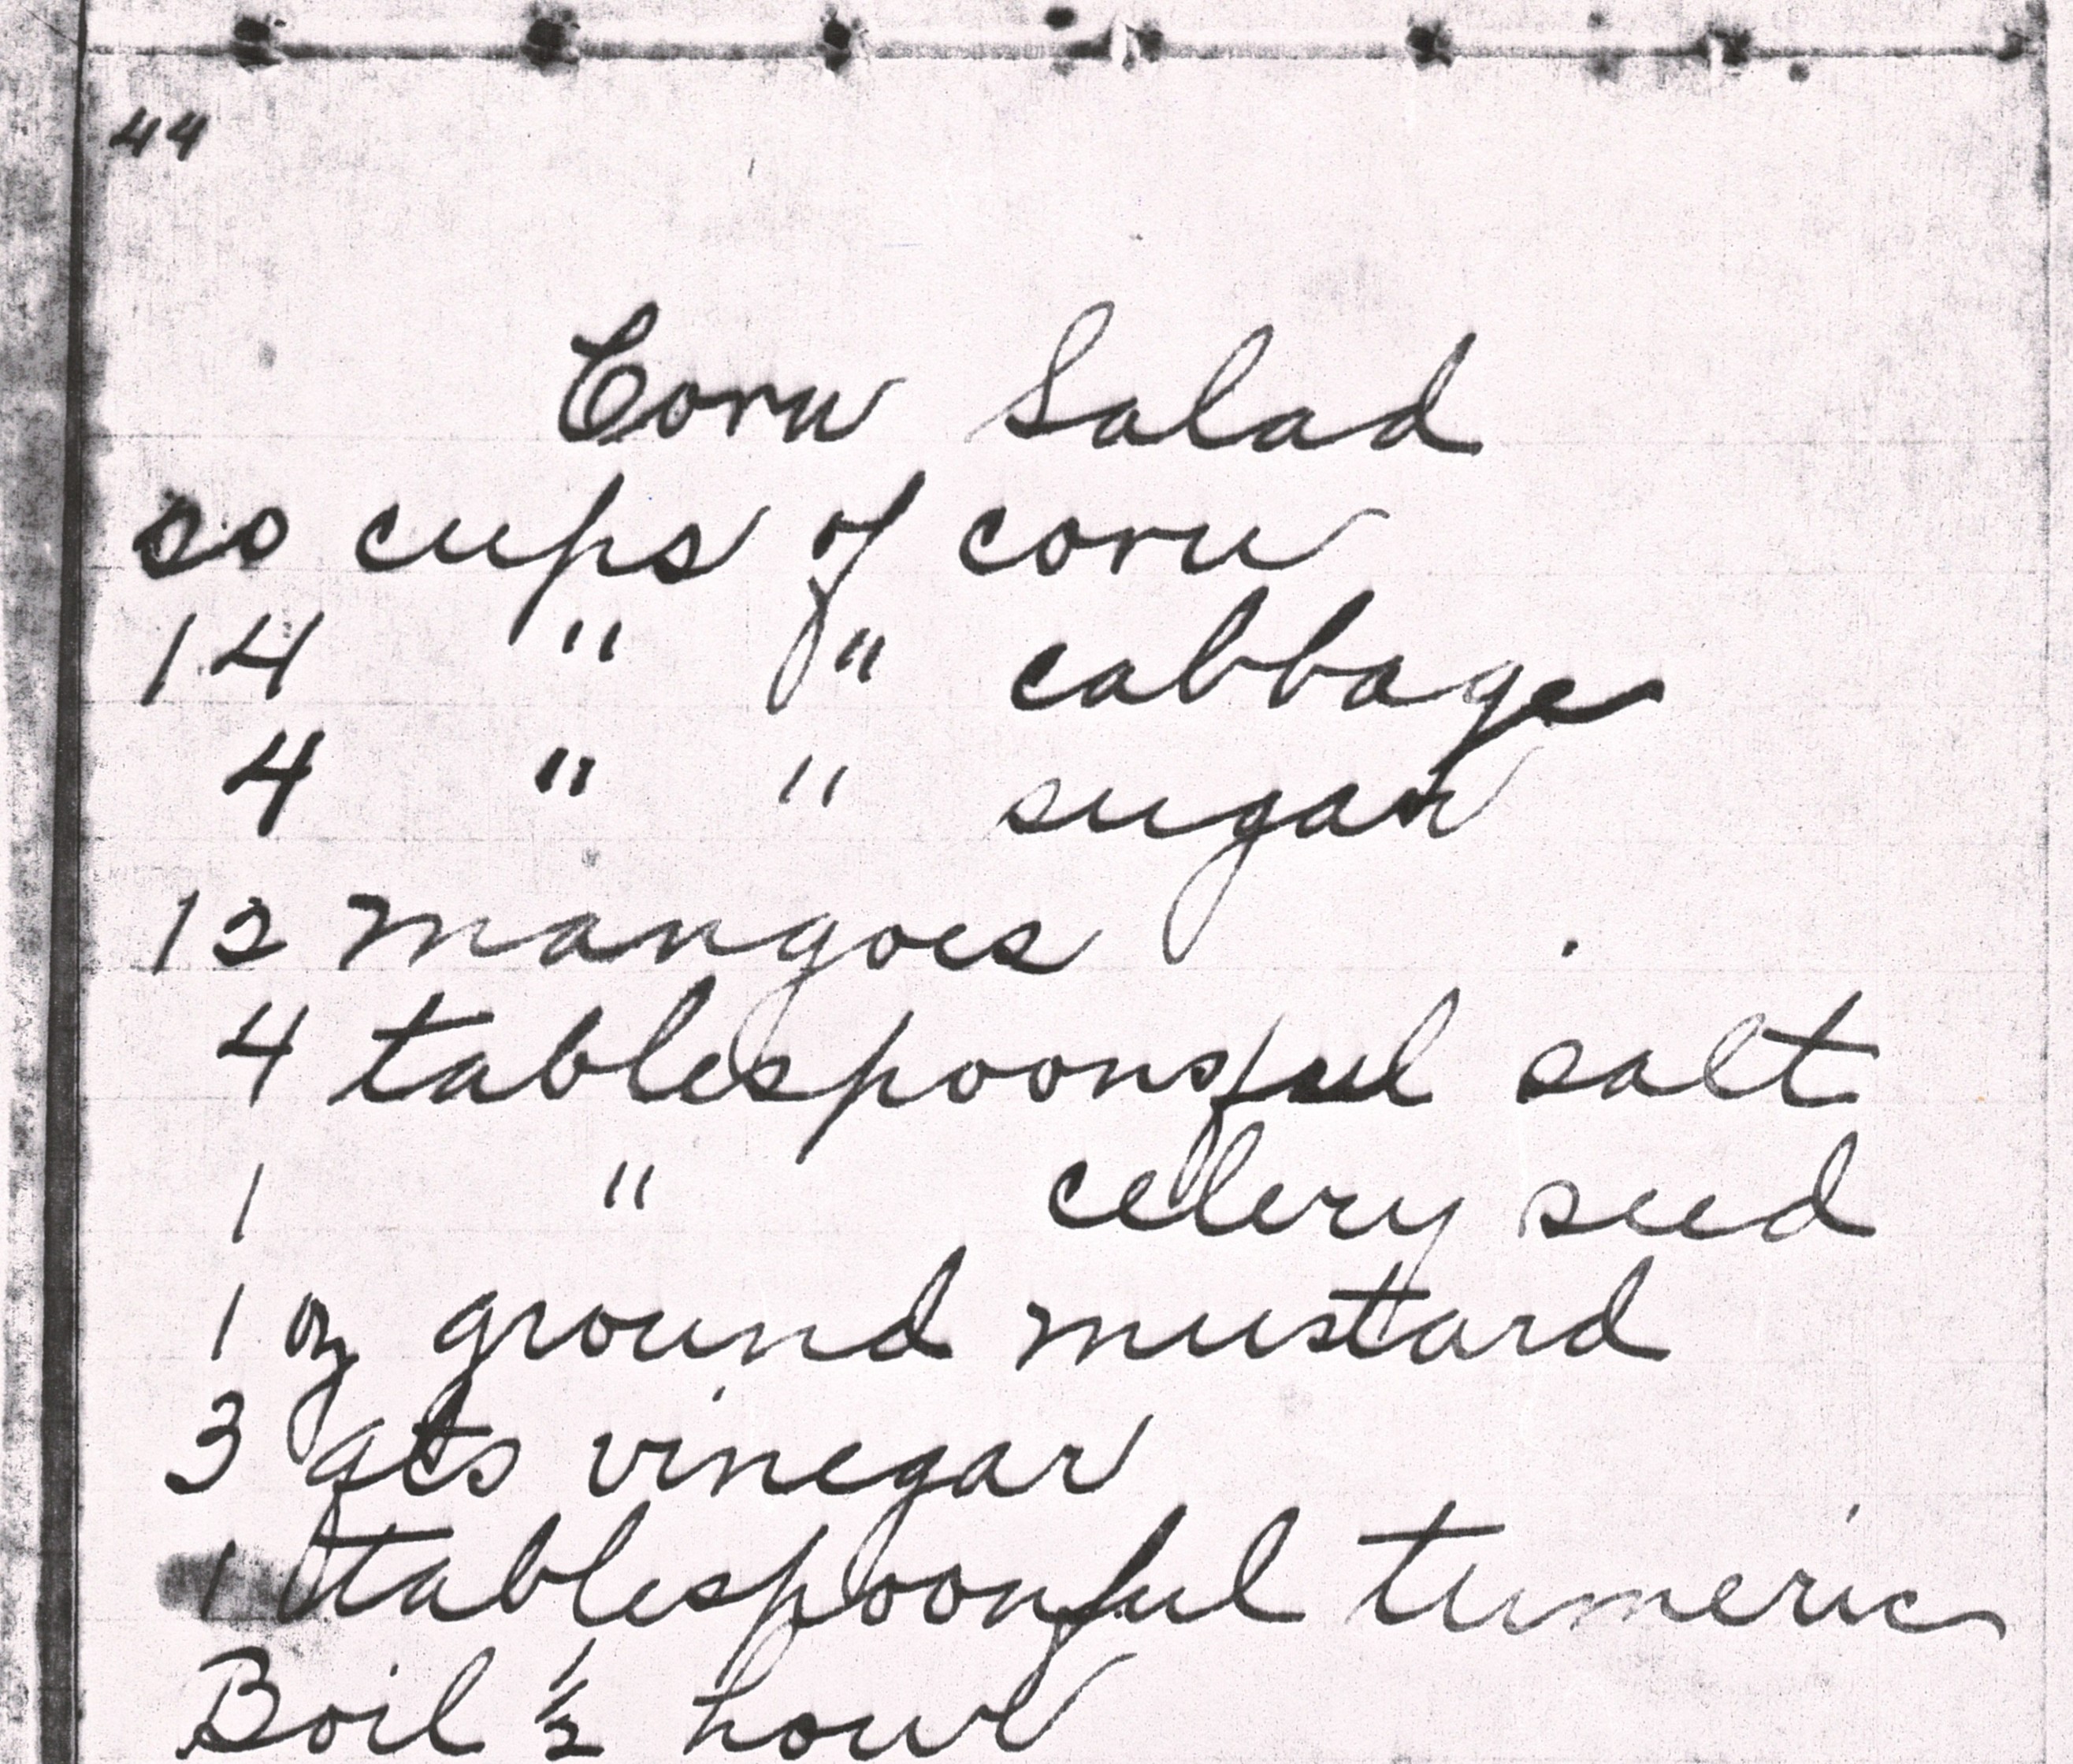 44
Corn Salad
20 cups of corn
14 " " cabbage
4 " " sugar
12 mangoes
4 tablespoonsful salt
1 " celery seed
1 oz ground mustard
3 qts vinegar
1 tablespoonful tumeric
Boil ½ hour